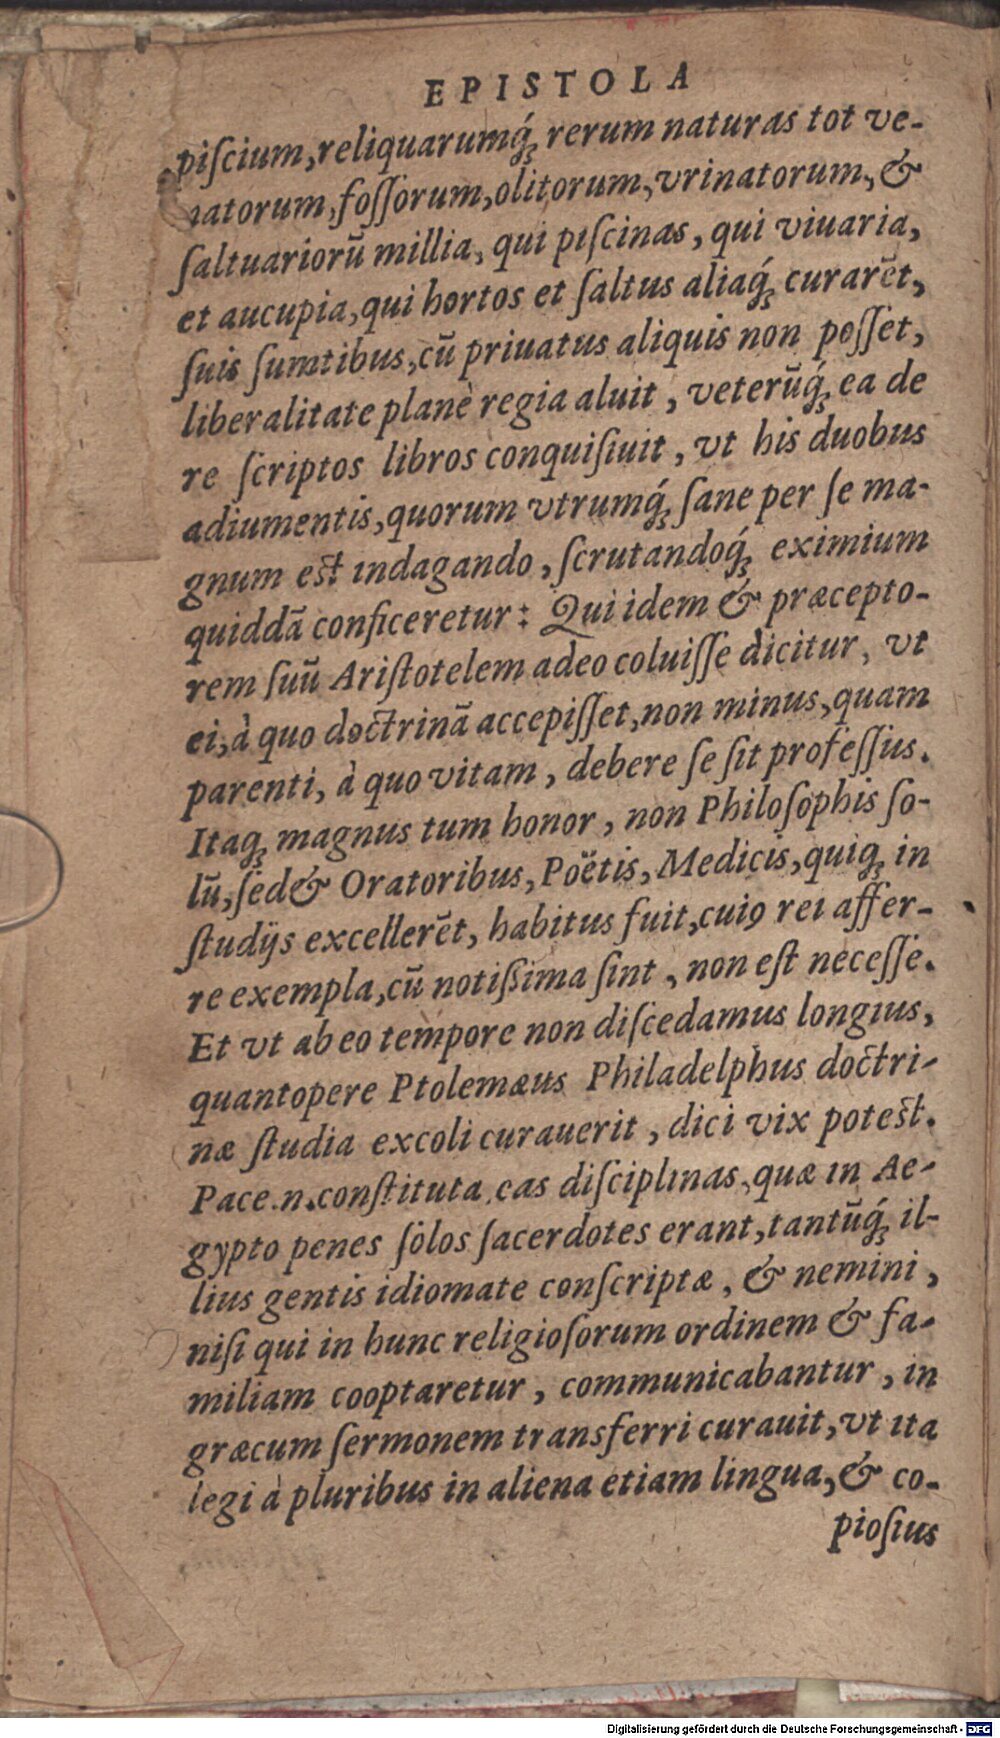 EPISTOLA
piſcium, reliquarumq́ꝫ rerum naturas tot ve-
natorum, foſſorum, olitorum, vrinatorum, &
ſaltuariorũ millia, qui piſcinas, qui viuaria,
et aucupia, qui hortos et ſaltus aliaq́ꝫ curarẽt,
ſuis ſumtibus, cũ priuatus aliquis non poſſet,
liberalitate planè regia aluit, veterũq́ꝫ ea de
re ſcriptos libros conquiſiuit, vt his duobus
adiumentis, quorum vtrumq́ꝫ ſane per ſe ma-
gnum est indagando, ſcrutandoq́ꝫ eximium
quiddã conficeretur: Qui idem & præcepto-
rem ſuũ Ariſtotelem adeo coluiſſe dicitur, vt
ei, à quo doctrinã accepiſſet, non minus, quam
parenti, à quo vitam, debere ſe ſit profeſſus.
Itaqꝫ magnus tum honor, non Philoſophis ſo-
lũ, ſed & Oratoribus, Poëtis, Medicis, quiqꝫ in
ſtudijs excellerẽt, habitus fuit, cuiꝰ rei affer-
re exempla, cũ notiſsima ſint, non eſt neceſſe.
Et vt ab eo tempore non diſcedamus longius,
quantopere Ptolemæus Philadelphus doctri-
næ ſtudia excoli curauerit, dici vix potest.
Pace.n.conſtituta eas diſciplinas, quæ in Ae-
gypto penes ſolos ſacerdotes erant, tantũq́ꝫ il-
lius gentis idiomate conſcriptæ, & nemini,
niſi qui in hunc religioſorum ordinem & fa-
miliam cooptaretur, communicabantur, in
græcum ſermonem transferri curauit, vt ita
legi à pluribus in aliena etiam lingua, & co-
pioſius
Digitalisierung gefördert durch die Deutsche Forschungsgemeinschaft - DFG